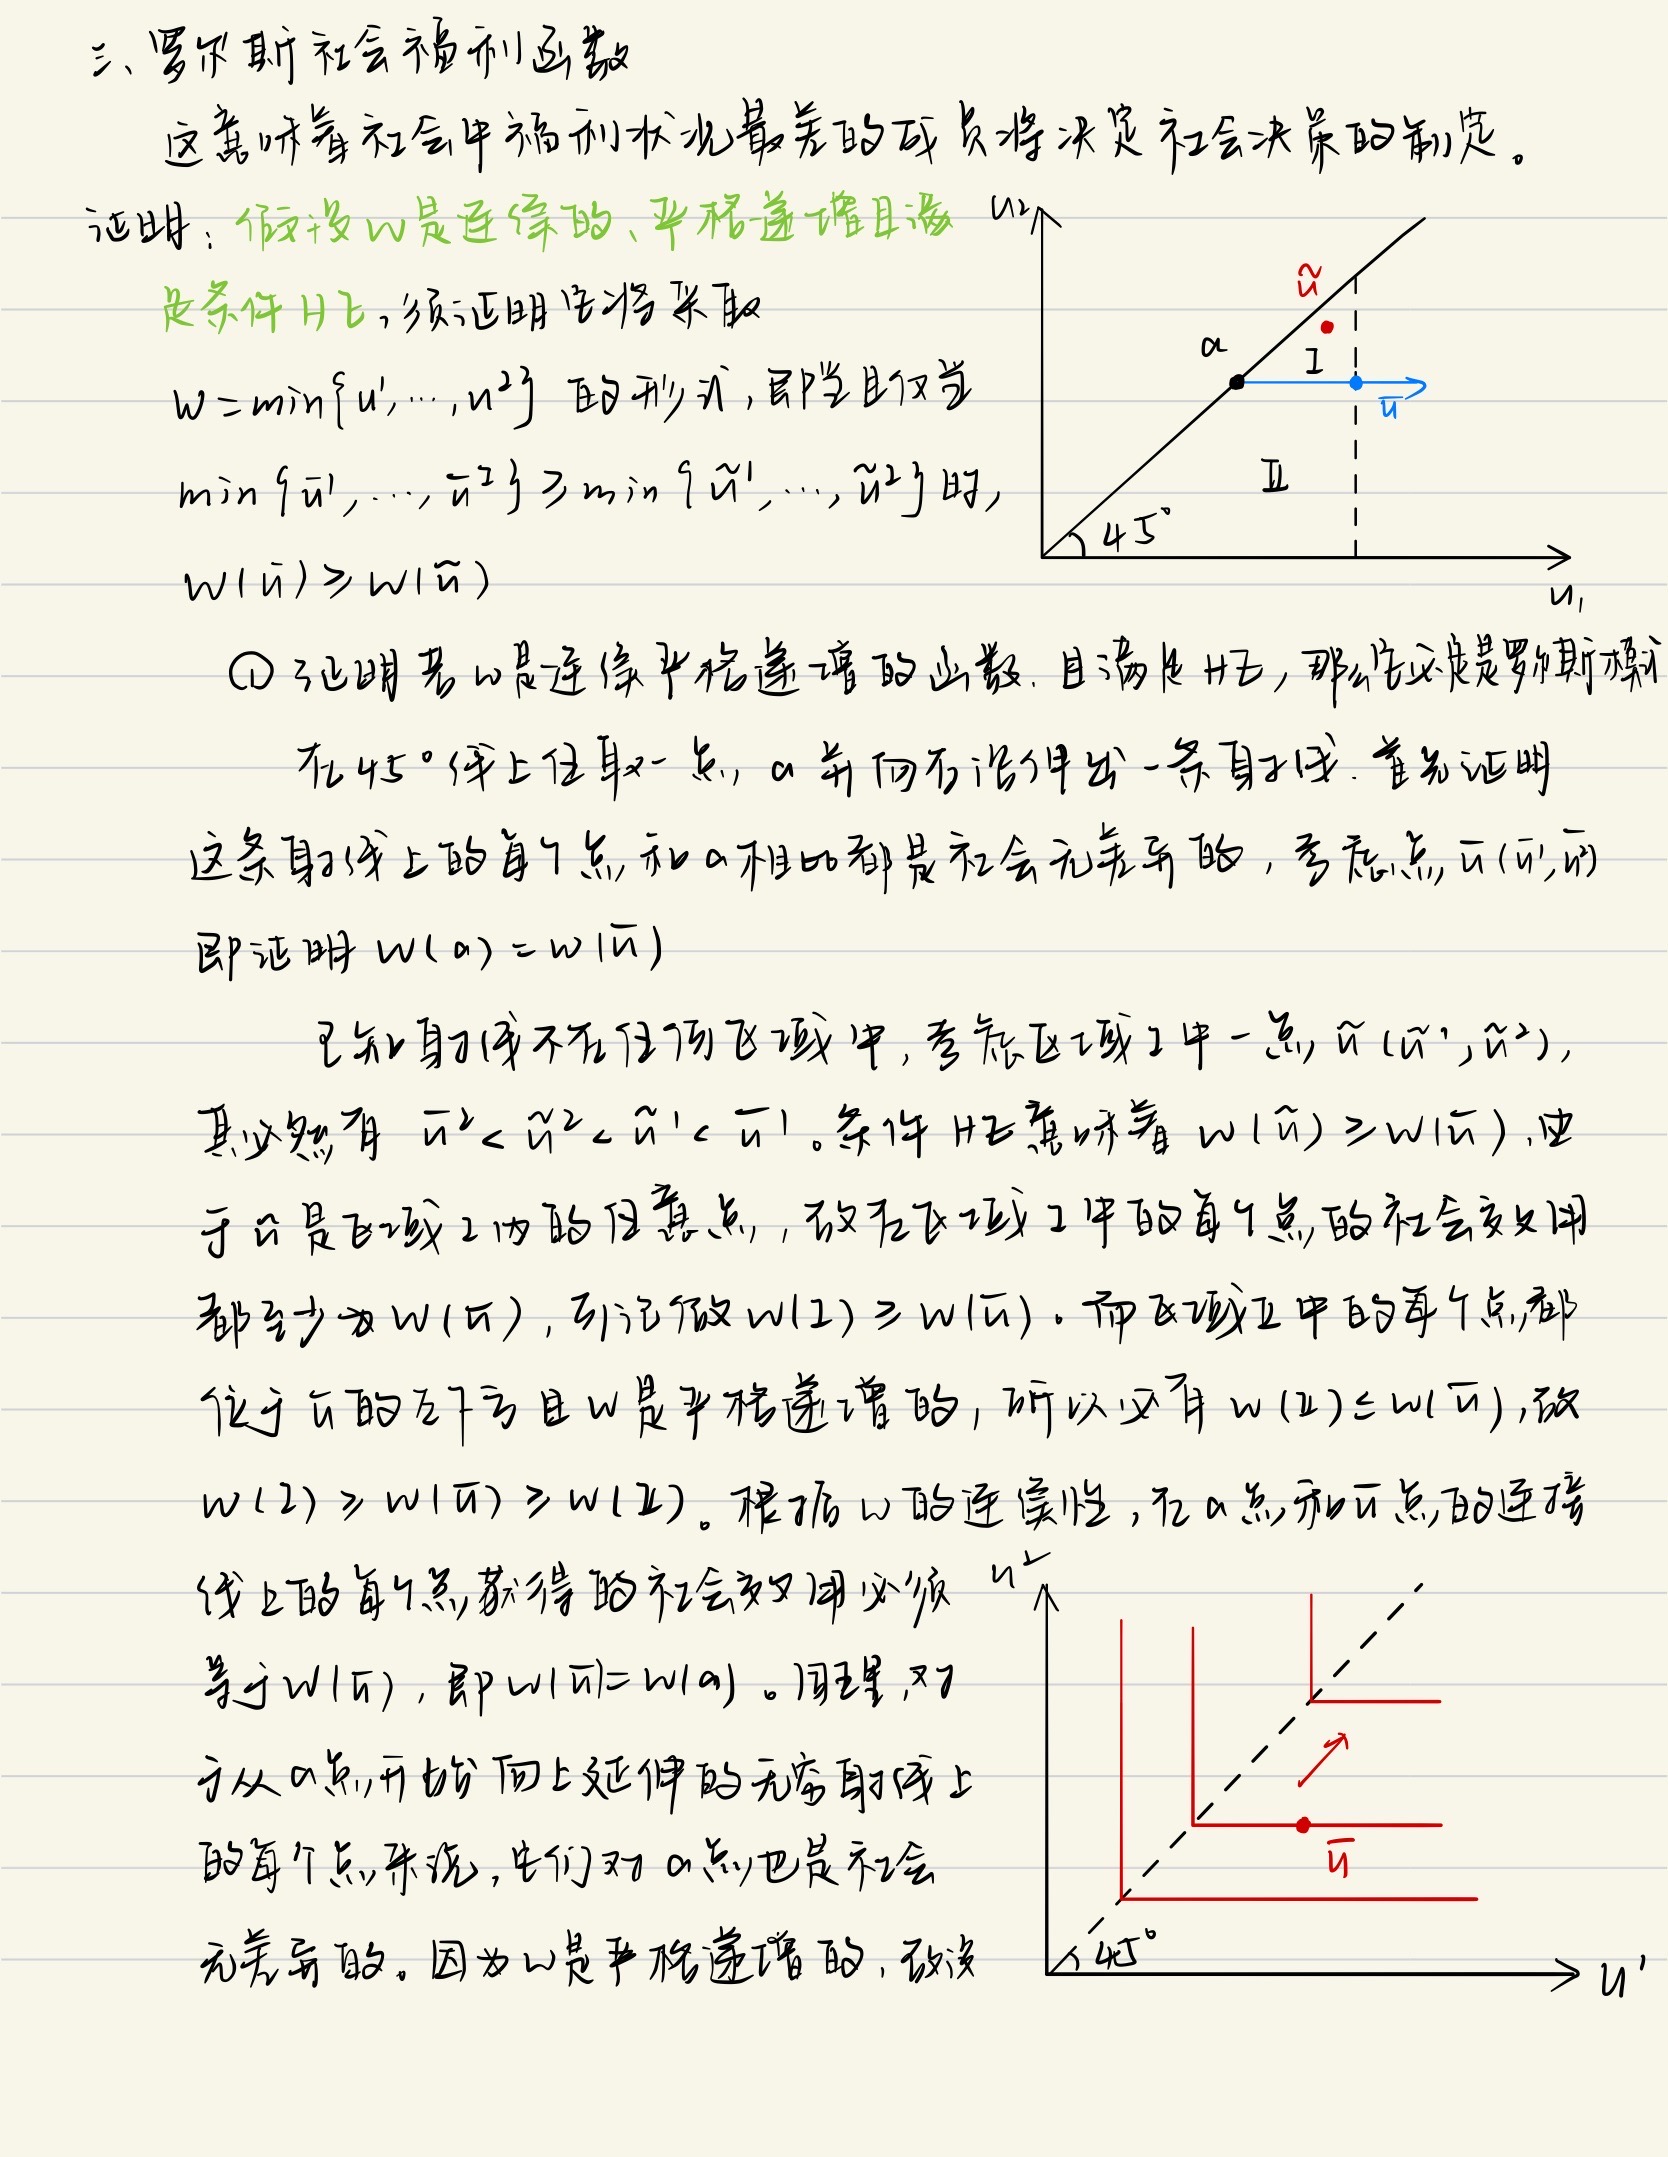 三、罗尔斯社会福利函数
这意味着社会中福利状况最差的成员将决定社会决策的制定。
证明：假设W是连续的、严格递增且满
足条件HE，须证明它将采取
W=min{u¹,…,u²} 的形式，即当且仅当
min{ū¹,…,ū²}≥min{ũ¹,…,ũ²}时，
W(ū)≥W(ũ)
u₂
ũ
a
I
ū
II
45°
u₁
①证明若W是连续严格递增的函数.且满足HE，那么它必定是罗尔斯模式
在45°线上任取一点a并向右沿伸出一条射线.首先证明
这条射线上的每个点和a相比都是社会无差异的，考虑点ū(ū¹,ū²)
即证明W(a)=W(ū)
已知射线不在任何区域中，考虑区域I中一点ũ(ũ¹,ũ²)，
其必然有 ū²<ũ²<ũ¹<ū¹。条件HE意味着W(ũ)≥W(ū)，由
于ũ是区域I内的任意点，故在区域I中的每个点的社会效用
都至少为W(ū)，可记做W(I)≥W(ū)。而区域II中的每个点都
位于ū的左下方且W是严格递增的，所以必有W(II)≤W(ū)，故
W(I)≥W(ū)≥W(II)。根据W的连续性，在a点和ū点的连接
线上的每个点获得的社会效用必须
等于W(ū)，即W(ū)=W(a)。同理，对
于从a点开始向上延伸的无穷射线上
的每个点来说，它们对a点也是社会
无差异的。因为W是严格递增的，故没
u²
ū
45°
u¹